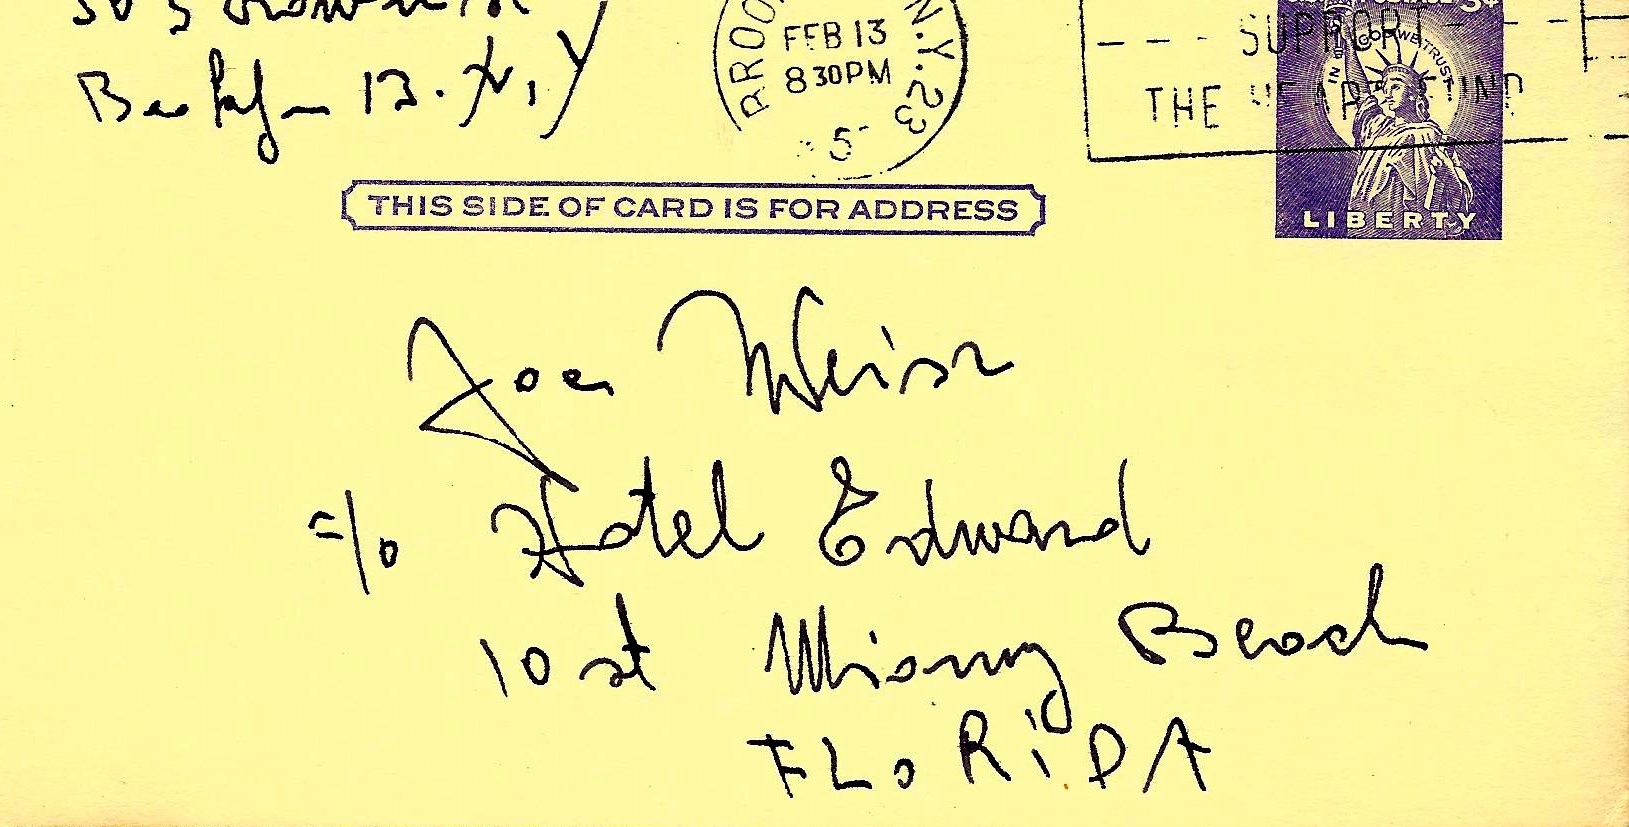 305
13. N,Y
BROO N.Y. 23
FEB 13
8 30PM
5
SUPPORT
THE HEART FUND
3¢
IN GOD WE TRUST
LIBERTY
THIS SIDE OF CARD IS FOR ADDRESS
Joe Weiss
c/o Hotel Edward
10 st Miamy Beach
FLoRiDA